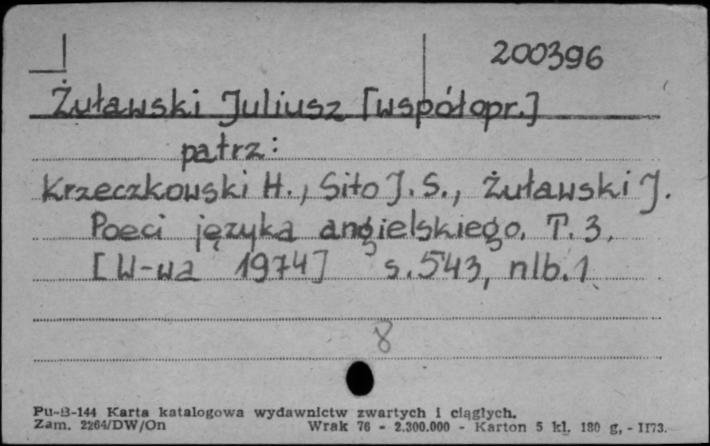 200396
Żuławski Juliusz [współopr.]
patrz:
Krzeczkowski H., Sito J. S., Żuławski J.
Poeci języka angielskiego. T. 3.
[W-wa 1974] s. 543, nlb. 1
8
Pu-B-144 Karta katalogowa wydawnictw zwartych i ciągłych.
Zam. 2264/DW/On Wrak 76 - 2.300.000 - Karton 5 kl. 180 g. - II73.